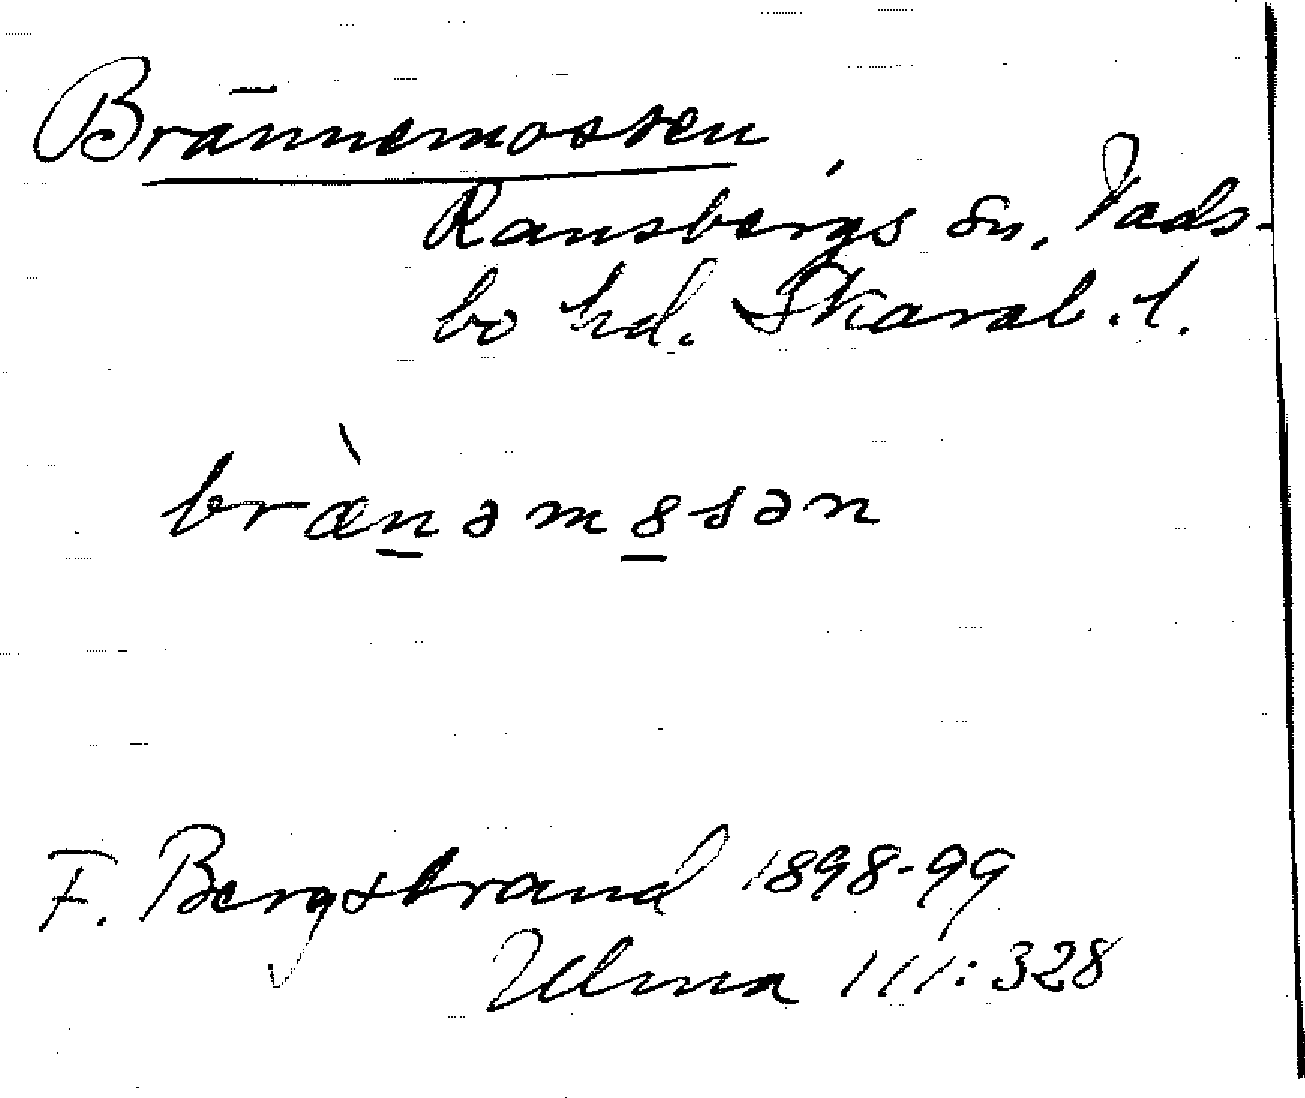 Brännemossen,
Ransbergs sn, Vads-
bo hd. Skarab. l.
bræ̀n̲əm8̲sən
F. Bergstrand 1898-99
Ulma 111:328